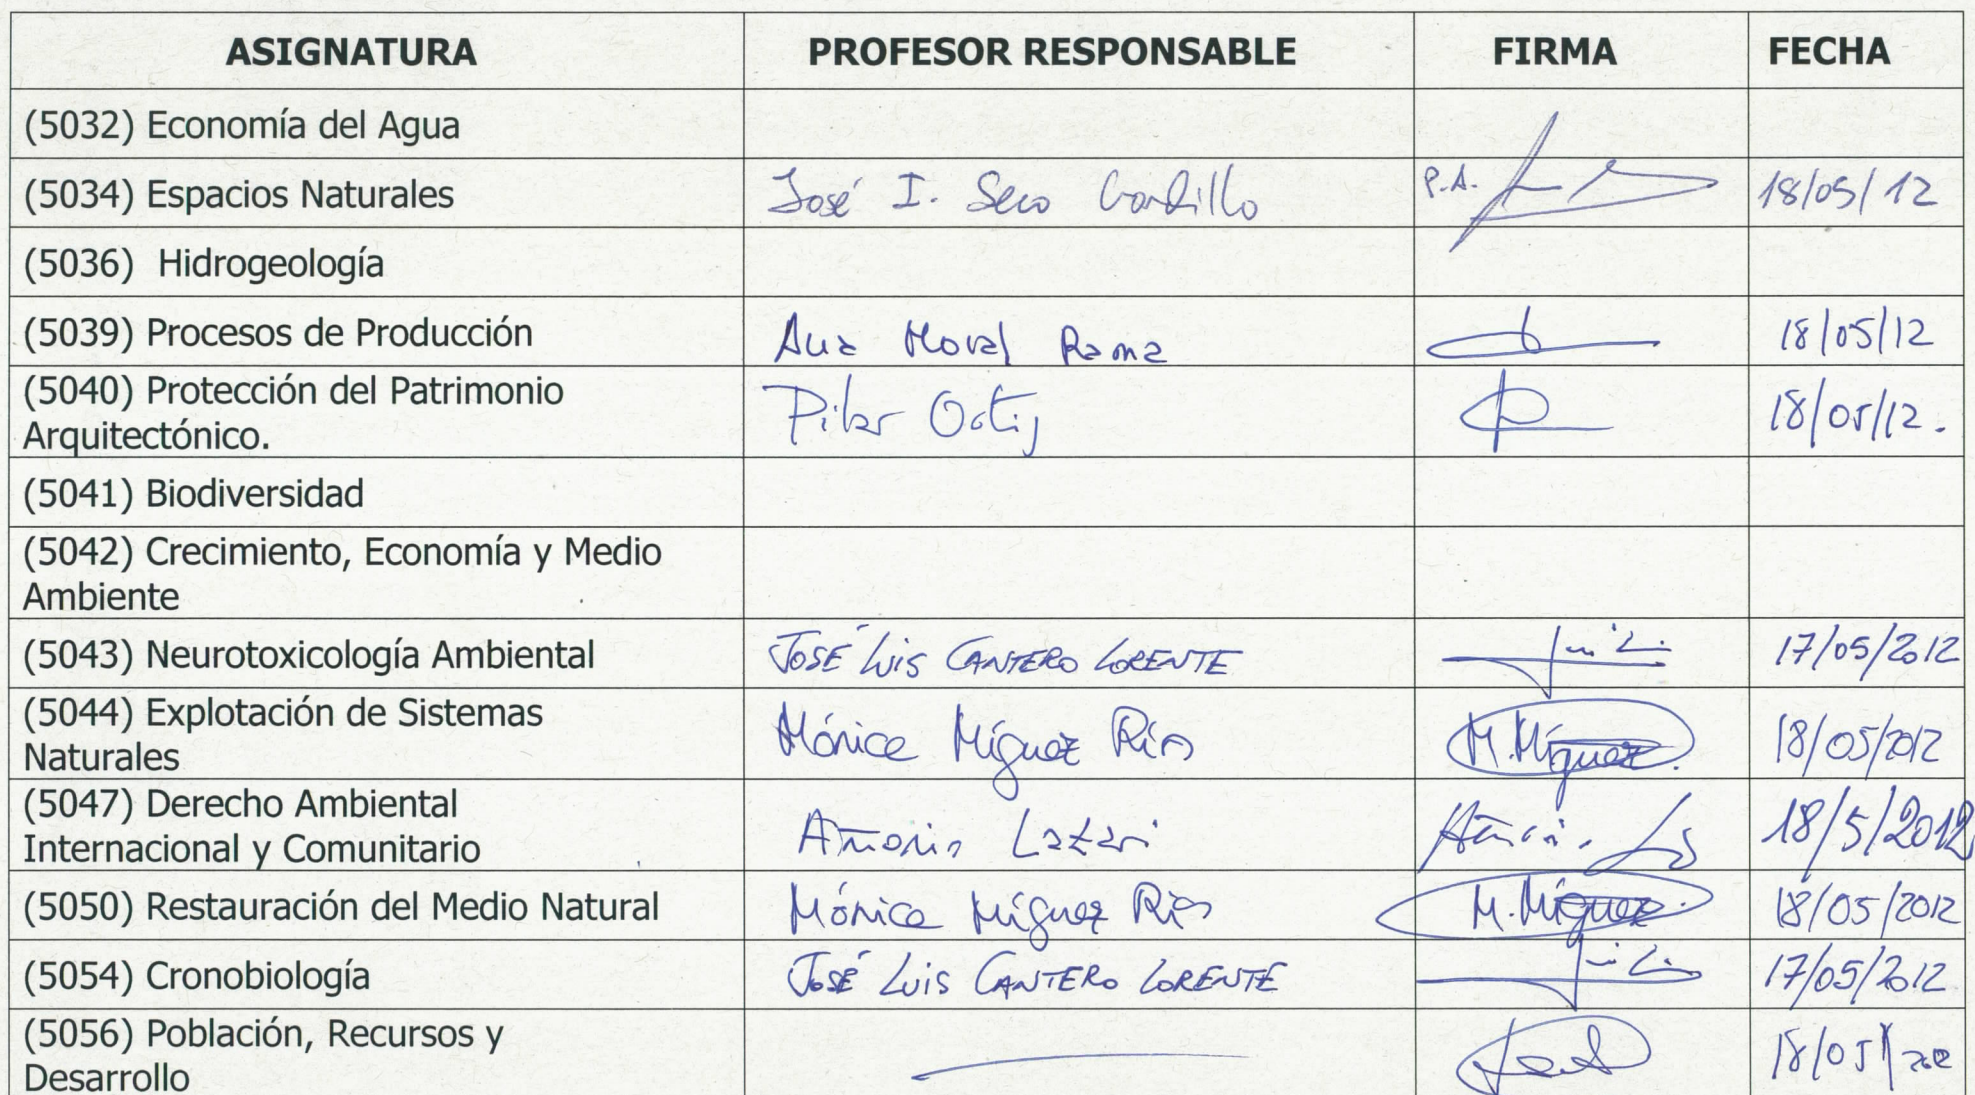 ASIGNATURA PROFESOR RESPONSABLE FIRMA FECHA
(5032) Economía del Agua
(5034) Espacios Naturales José I. Seco Gordillo P.A. 18/05/12
(5036) Hidrogeología
(5039) Procesos de Producción Ana Moral Rama 18/05/12
(5040) Protección del Patrimonio
Arquitectónico. Pilar Ortiz 18/05/12.
(5041) Biodiversidad
(5042) Crecimiento, Economía y Medio
Ambiente
(5043) Neurotoxicología Ambiental JOSÉ LUIS CANTERO LORENTE 17/05/2012
(5044) Explotación de Sistemas
Naturales Mónica Míguez Ríos M. Míguez 18/05/2012
(5047) Derecho Ambiental
Internacional y Comunitario Antonio Lazari 18/5/2012
(5050) Restauración del Medio Natural Mónica Míguez Ríos M. Míguez 18/05/2012
(5054) Cronobiología JOSÉ LUIS CANTERO LORENTE 17/05/2012
(5056) Población, Recursos y
Desarrollo 18/05/